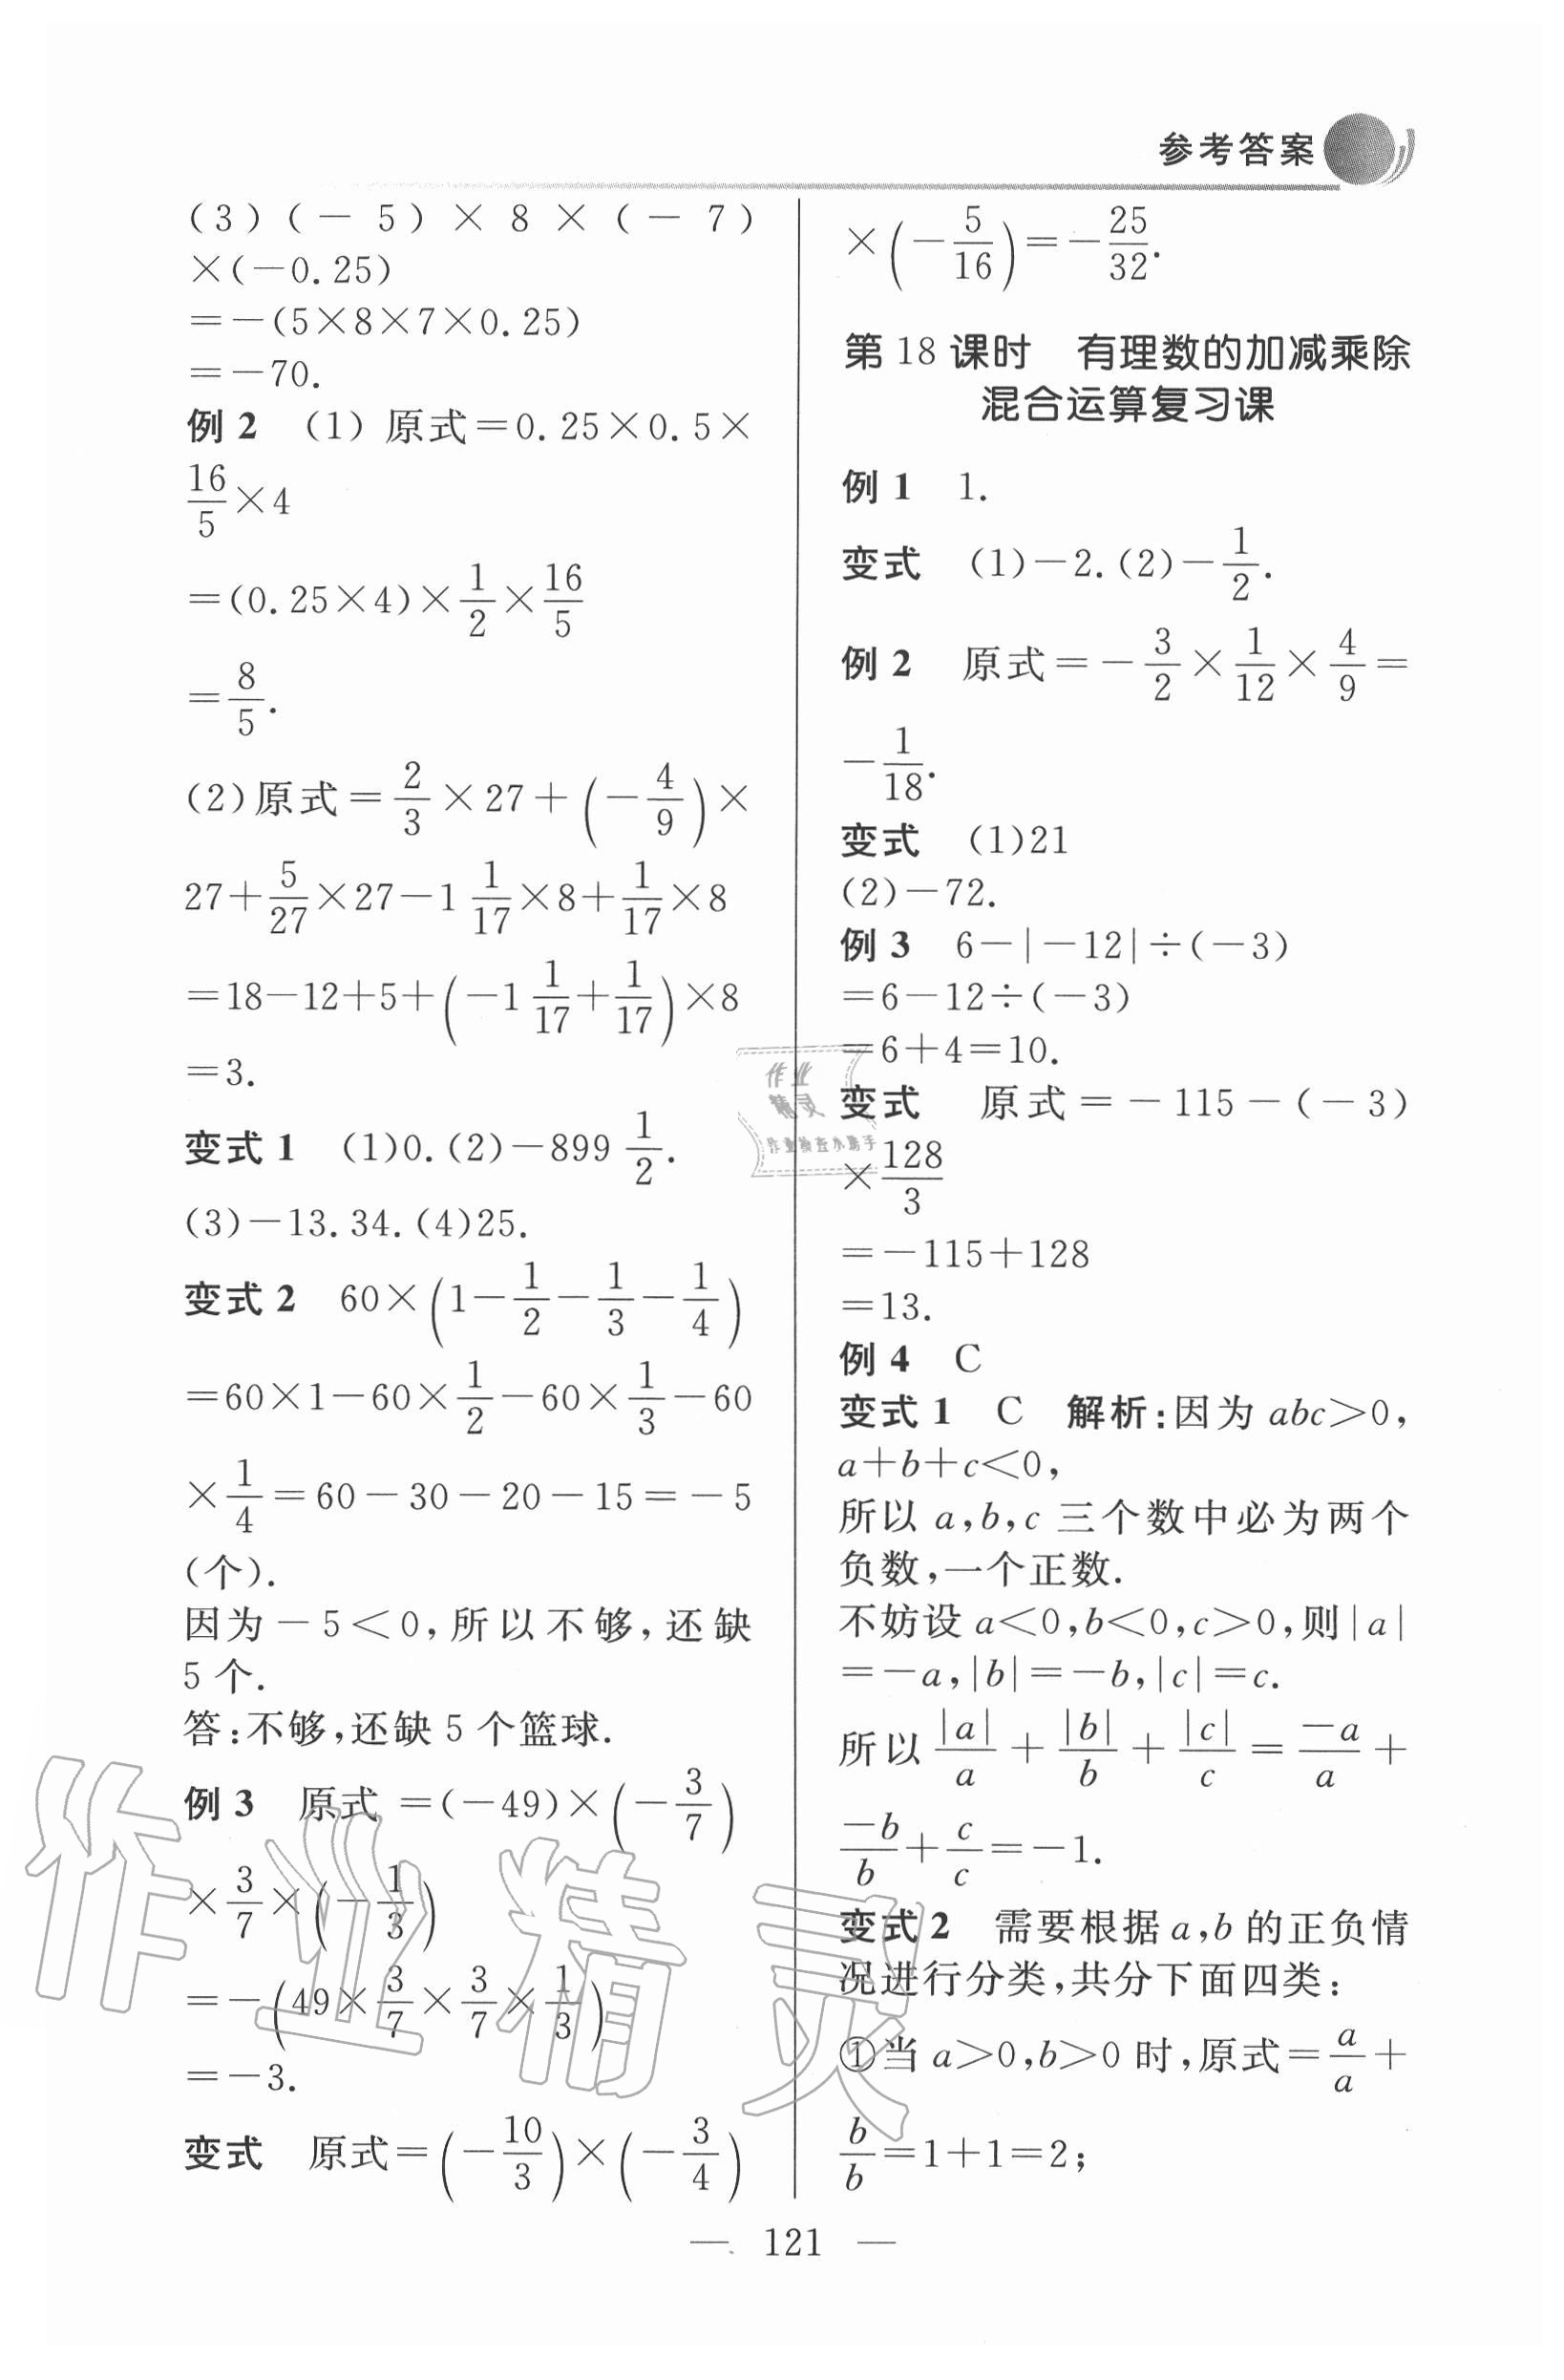 参考答案
(3)(－5)×8×(－7)
×(－0.25)
=－(5×8×7×0.25)
=－70.
例 2 (1) 原式=0.25×0.5×
16/5×4
=(0.25×4)×1/2×16/5
=8/5.
(2)原式=2/3×27+(－4/9)×
27+5/27×27－1 1/17×8+1/17×8
=18－12+5+(－1 1/17+1/17)×8
=3.
变式 1 (1)0.(2)－899 1/2.
(3)－13.34.(4)25.
变式 2 60×(1－1/2－1/3－1/4)
=60×1－60×1/2－60×1/3－60
×1/4=60－30－20－15=－5
(个).
因为－5<0,所以不够,还缺
5 个.
答:不够,还缺 5 个篮球.
例 3 原式=(－49)×(－3/7)
×3/7×(－1/3)
=－(49×3/7×3/7×1/3)
=－3.
变式 原式=(－10/3)×(－3/4)
×(－5/16)=－25/32.
第 18 课时 有理数的加减乘除
混合运算复习课
例 1 1.
变式 (1)－2.(2)－1/2.
例 2 原式=－3/2×1/12×4/9=
－1/18.
变式 (1)21
(2)－72.
例 3 6－|－12|÷(－3)
=6－12÷(－3)
=6+4=10.
变式 原式=－115－(－3)
×128/3
=－115+128
=13.
例 4 C
变式 1 C 解析:因为 abc>0,
a+b+c<0,
所以 a,b,c 三个数中必为两个
负数,一个正数.
不妨设 a<0,b<0,c>0,则|a|
=－a,|b|=－b,|c|=c.
所以 |a|/a+|b|/b+|c|/c=－a/a+
－b/b+c/c=－1.
变式 2 需要根据 a,b 的正负情
况进行分类,共分下面四类:
①当 a>0,b>0 时,原式=a/a+
b/b=1+1=2;
— 121 —
作业
精灵
作业检查小助手
作业精灵